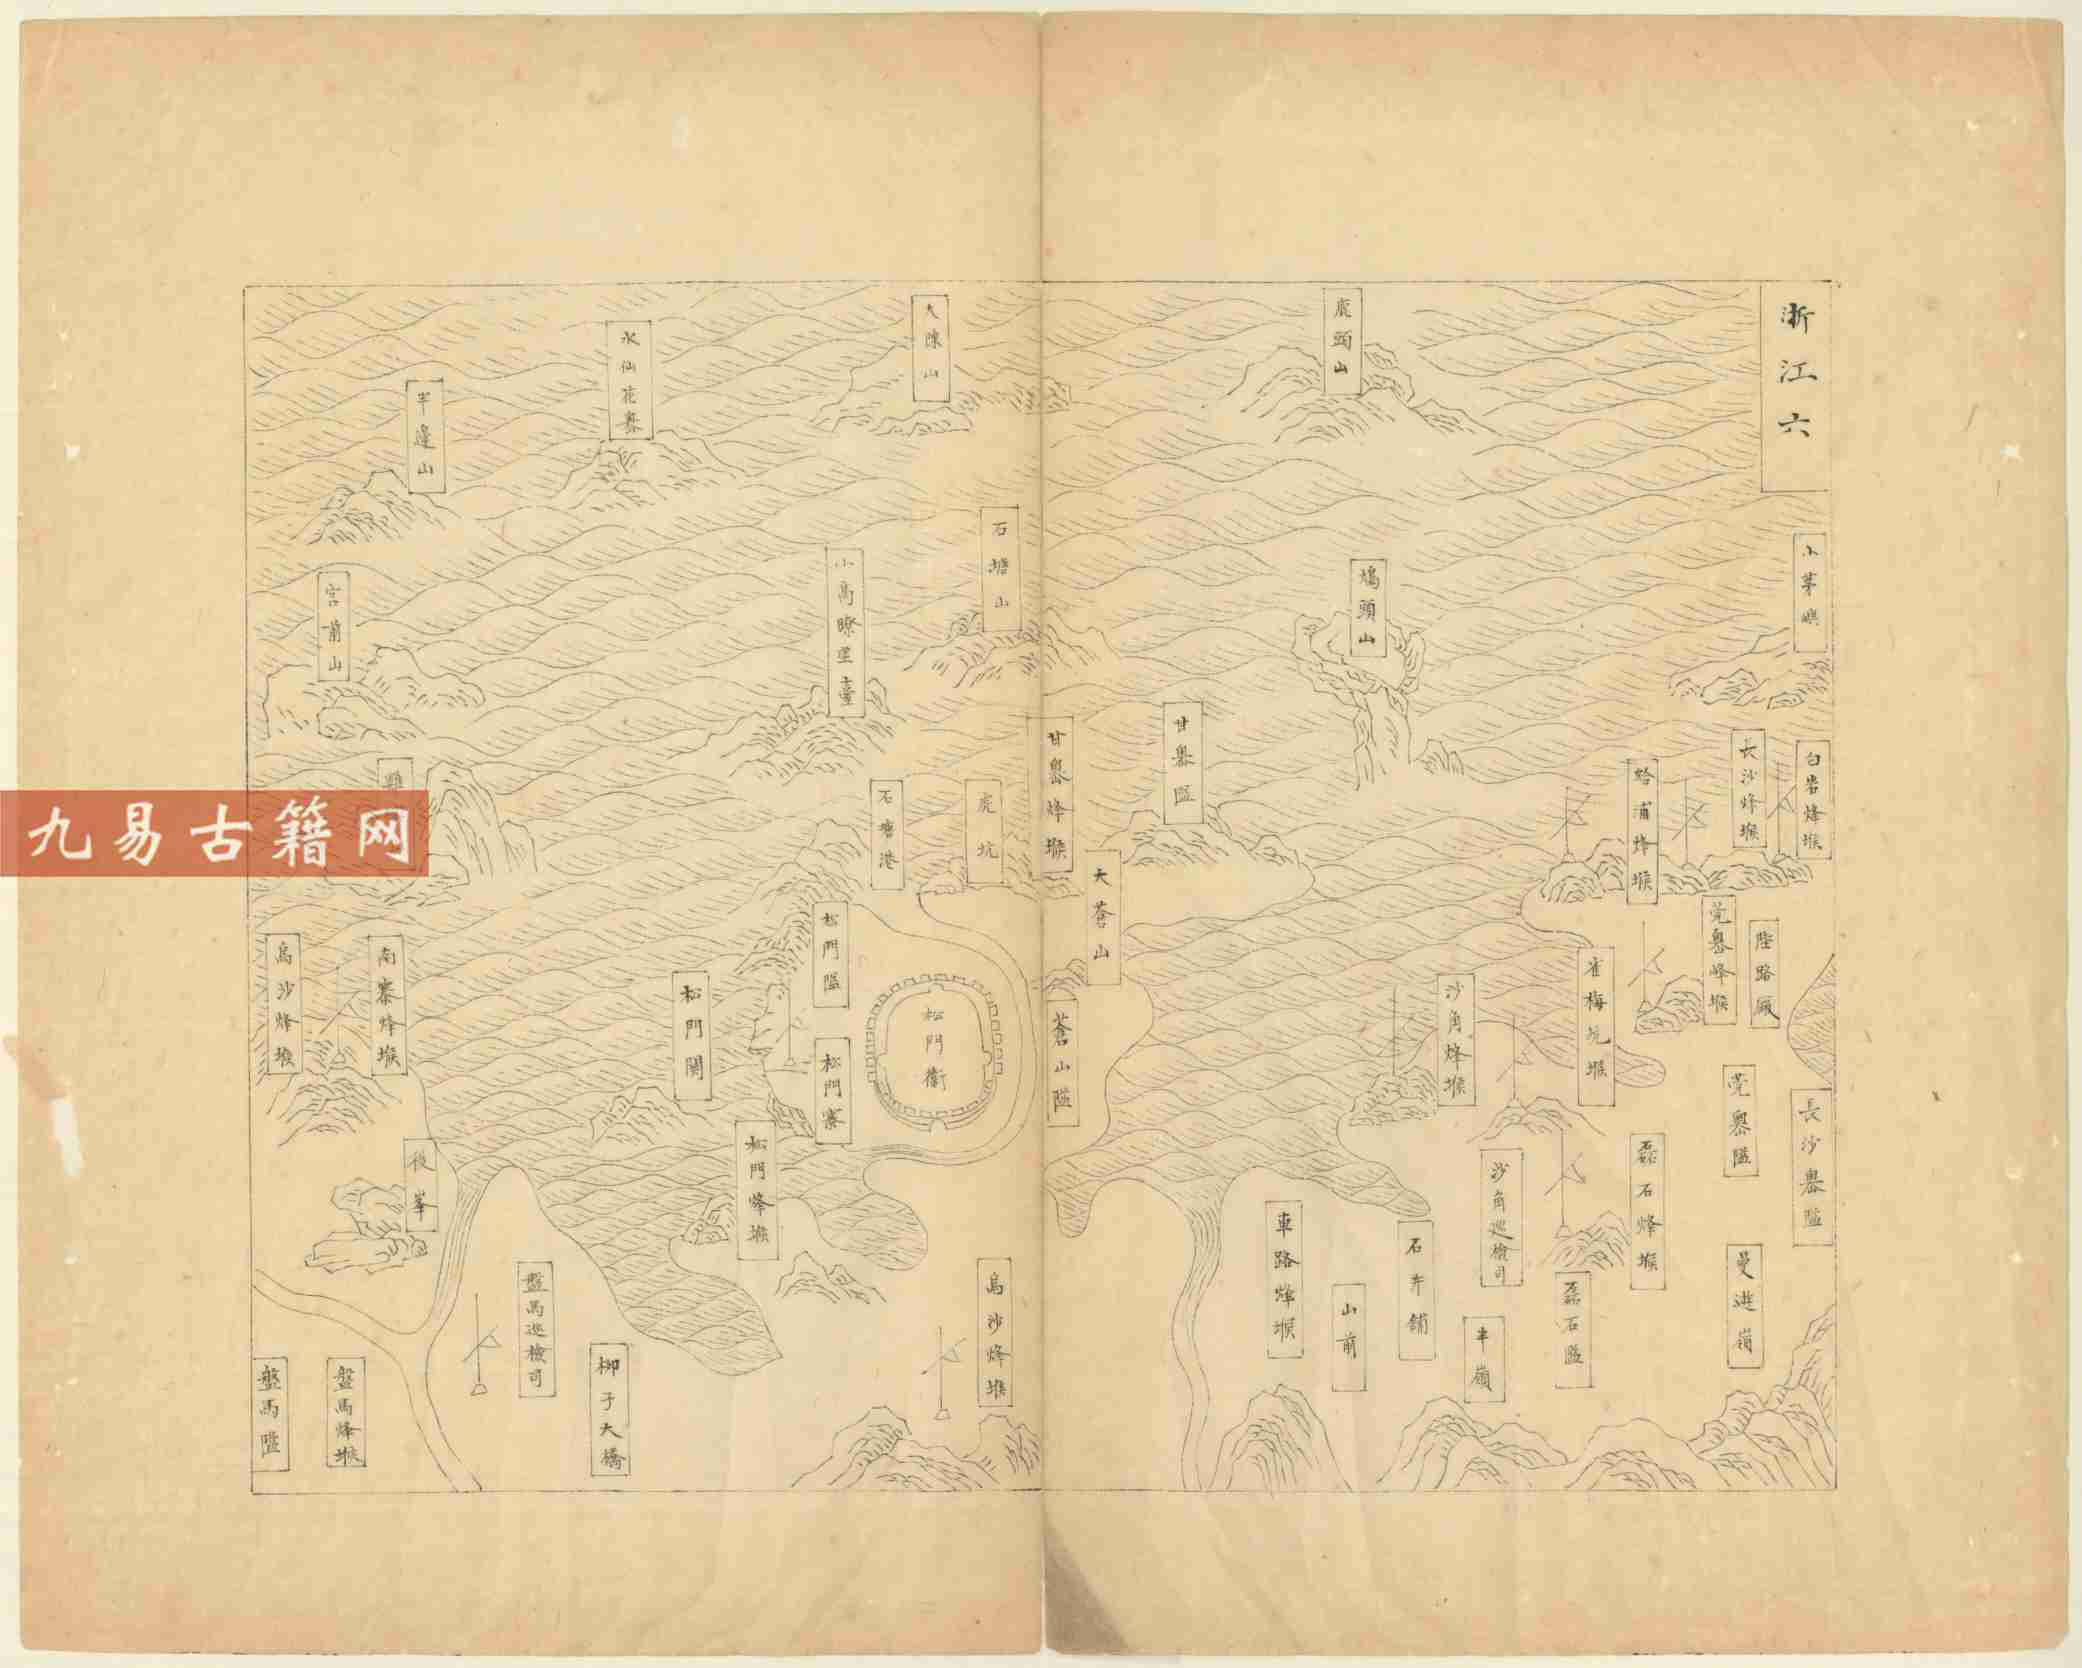 浙江六
小茅嶼
白岩烽堠
長沙烽堠
蛤浦烽堠
鹿頭山
鳩頭山
甘嶴隘
甘嶴烽堠
大蒼山
蒼山隘
陸路廠
嶴烽堠
雀梅坑堠
沙角烽堠
長沙嶴隘
嶴隘
磊石烽堠
沙角巡檢司
曼遊嶺
磊石隘
半嶺
石井鋪
山前
車路烽堠
大陳山
水仙花嶴
半邊山
石塘山
小髙瞭望臺
宮前山
虎坑
石塘港
松門隘
松門衛
松門寨
松門関
松門烽堠
南寨烽堠
烏沙烽堠
後峯
烏沙烽堠
盤馬巡檢司
柳子大橋
盤馬烽堠
盤馬隘
九易古籍网